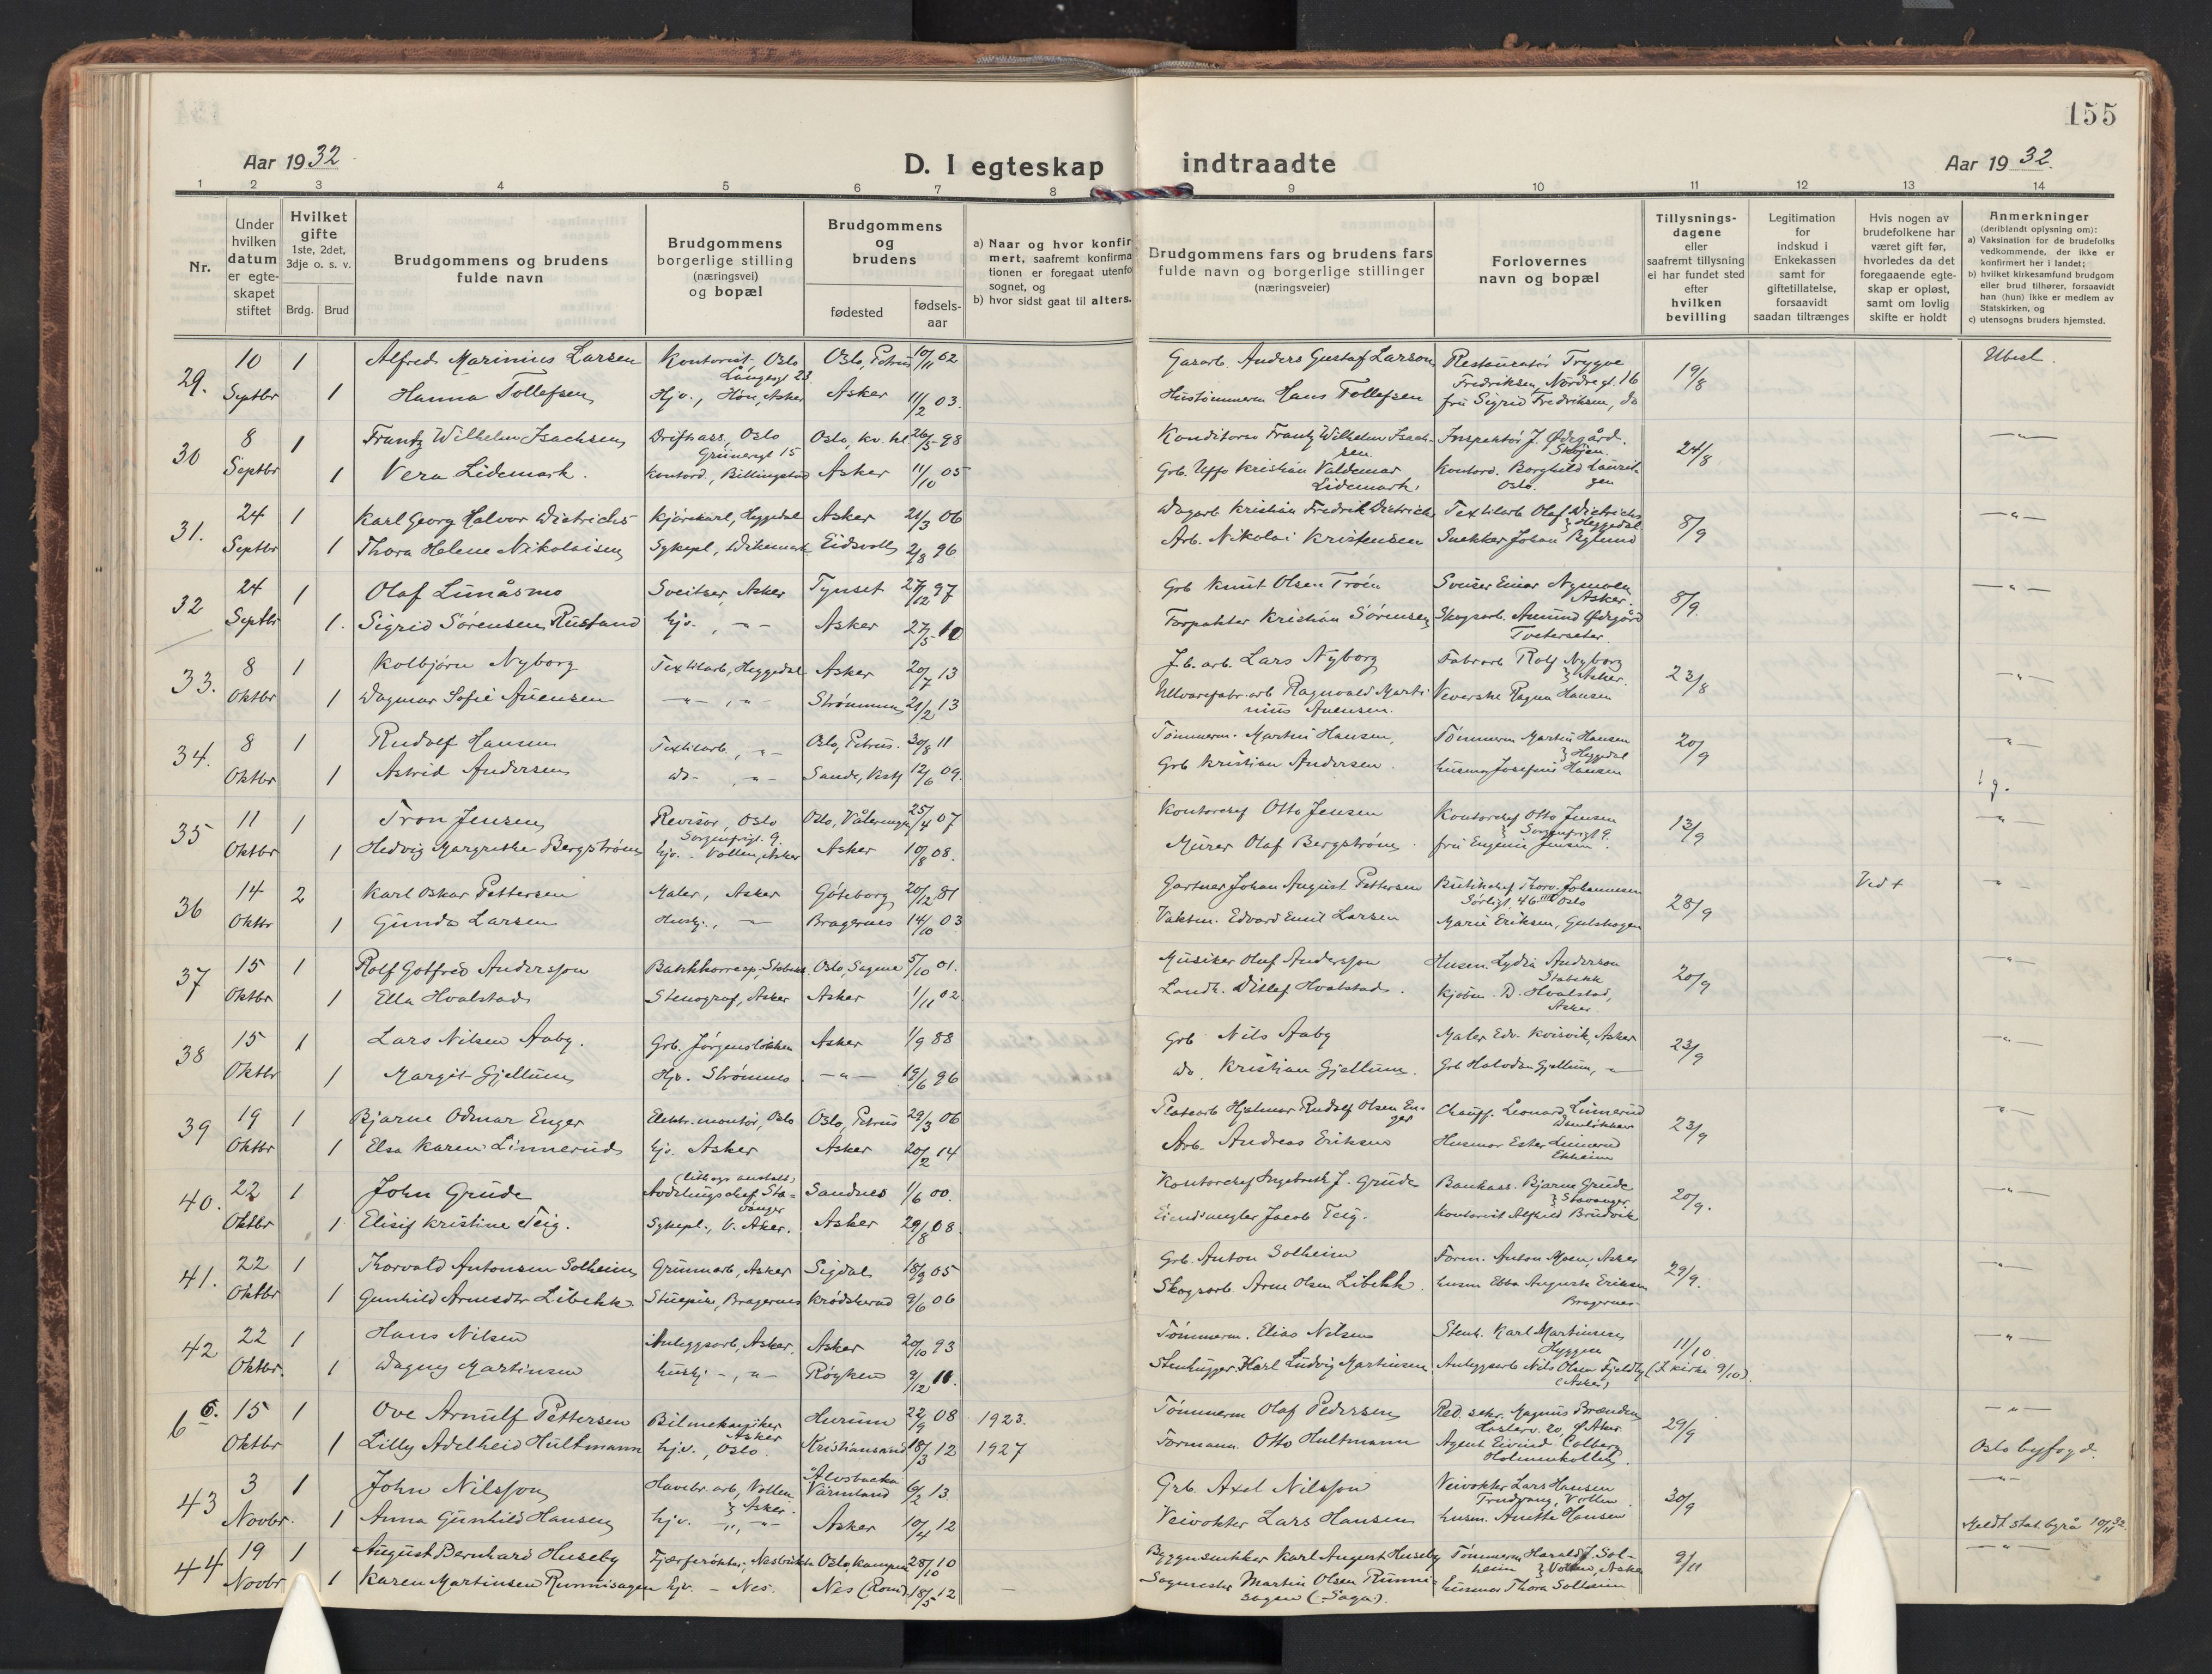 155
Aar 1932.
D. I egteskap indtraadte
Aar 1932.
1 2 3 4 5 6 7 8 9 10 11 12 13 14
Nr.
Under hvilken datum er egteskapet stiftet
Hvilket gifte 1ste, 2det, 3dje o. s. v.
Brdg. Brud
Brudgommens og brudens fulde navn
Brudgommens borgerlige stilling (næringsvei) og bopæl
Brudgommens og brudens
fødested
fødsels-aar
a) Naar og hvor konfirmert, saafremt konfirmationen er foregaat utenfo sognet, og
b) hvor sidst gaat til alters.
Brudgommens fars og brudens fars fulde navn og borgerlige stillinger (næringsveier)
Forlovernes navn og bopæl
Tillysningsdagene eller saafremt tillysning ei har fundet sted efter hvilken bevilling
Legitimation for indskud i Enkekassen samt for giftetillatelse, forsaavidt saadan tiltrænges
Hvis nogen av brudefolkene har været gift før, hvorledes da det foregaaende egteskap er opløst, samt om lovlig skifte er holdt
Anmerkninger (deriblandt oplysning om):
a) Vaksination for de brudefolks vedkommende, der ikke er konfirmert her i landet;
b) hvilket kirkesamfund brudgom eller brud tilhører, forsaavidt han (hun) ikke er medlem av Statskirken, og
c) utensogns bruders hjemsted.
29. 10 1 Alfred Marinius Larsen Kontorist, Oslo Langesgt 23. Oslo, Petrus 10/11 02 Gasarb. Anders Gustaf Larson Restauratør Trygve Fredriksen, Nordregt. 16 19/8 Ubesl.
Septbr 1 Hanna Tollefsen Hjv., Høn, Asker Asker 11/2 03. Hustømmerm Hans Tollefsen fru Sigrid Fredriksen, do
30 8 1 Frantz Wilhelm Isachsen Driftsass, Oslo Grünersgt 15 Oslo, kv. kl. 26/5 98 Konditorso Frantz Wilhelm Isachsen Inspektør J. Ødegård. Skøyen 24/8 —"—
Septbr 1 Vera Lidemark. Kontord., Billingstad Asker 11/10 05 Grb. Uffo Kristian Valdemar Lidemark. Kontord. Borghild Lauritzen Oslo.
31. 24 1 Karl Georg Halvor Dietrichs Kjørekarl, Heggedal Asker 21/3 06 Dagarb Kristian Fredrik Dietrichs Textilarb Olaf Dietrichs } Heggedal 8/9 —"—
Septbr 1 Thora Helene Nikolaisen Sykepl., Dikemark Eidsvoll 2/8 96 Arb. Nikolai Kristensen Snekker Johan Bylund
32 24 1 Olaf Lunåsmo Sveitser, Asker Tynset 27/12 97 Grb Knut Olsen Troen Sveiser Einar Nymoen Asker. 8/9. —"—
Septbr 1. Sigrid Sørensen Rustand hjv. , —"— Asker 27/5 10 Forpakter Kristian Sørensen Skogsarb. Amund Ødegård Tveterseter.
33. 8 1 Kolbjørn Nyborg Textilarb, Heggedal Asker 20/7 13 J.b. arb. Lars Nyborg Fabrarb Rolf Nyborg } Asker. 23/8 —"—
Oktbr 1 Dagmar Sofie Auensen —"— , —"— Strømmen 21/2 13 Ullvarefabr. arb Ragnvald Martinius Auensen. Veverske Ragna Hansen
34. 8 1 Rudolf Hansen Textilarb, —"— Oslo, Petrus. 30/8 11 Tømmerm. Martin Hansen, Tømmerm Martin Hansen } Heggedal 20/9 —"—
Oktbr 1 Astrid Andersen do- , —"— Sande, Vestf 12/6 09. Grb Kristian Andersen. husmor Josefine Hansen
35 11 1 Tron Jensen Revisor, Oslo Sorgenfrigt. 9. Oslo, Vålerengen 25/4 07 Kontorchef Otto Jensen Kontorchef Otto Jensen } Sorgenfrigt 9. 13/9 —"—
Oktbr 1 Hedvig Margrethe Bergstrøm hjv. - Vollen, Asker Asker 10/8 08. Murer Olaf Bergstrøm. fru Eugenie Jensen.
36 14 2 Karl Oskar Pettersen Maler, Asker Göteborg 20/12 81 Gartner Johan August Pettersen Butikchef Thorv. Johannesen Sørligt. 46 III Oslo 28/9 Ved + —"—
Oktbr 1 Gunda Larsen Hushj., — Bragernes 14/10 03 Vaktm. Edvard Emil Larsen Marie Eriksen, Gulskogen
37 15 1 Rolf Gotfred Andersson Bankkorresp. Stabekk Oslo, Sagene 5/10 01. Musiker Oluf Andersson Husm. Lydia Anderson Stabekk 20/9 —"—
Oktbr 1 Ella Hvalstad Stenograf, Asker Asker 1/11 02. Landh. Ditlef Hvalstad. Kjøbm. D. Hvalstad, Asker.
38 15 1 Lars Nilsen Aaby. Grb. Jørgensløkken Asker 1/9 88 Grb Nils Aaby Maler Edv. Kvisvik, Asker 23/9 —"—
Oktbr 1 Margit Gjellum Hjv. Strømmen —"— 19/6 96 do. Kristian Gjellum. Grb Halvdan Gjellum, —"—
39 19 1 Bjarne Odmar Enger Elektr. montør, Oslo Oslo, Petrus 29/3 06 Platearb Hjalmar Rudolf Olsen Enger Chauff. Leonard Linnerud 23/9 —"—
Oktbr 1 Elsa Karen Linnerud hjv. Asker Asker 20/2 14 Arb. Andreas Eriksen Husmor Ester Linnerud Ekheim
40. 22 1 John Grude (lithogr anstalt) Avdelingschef, Stavanger Sandnes 1/6 00. Kontorchef Ingebreth J. Grude Bankass. Bjarne Grude } Stavanger 20/9. —"—
Oktbr 1 Elisif Kristine Teig. Sykepl., V. Aker. Asker 29/8 08. Eiendsmegler Jacob Teig. Kontorist Alfhild Brudvik
41. 22 1 Thorvald Antonsen Solheim Grunnarb, Asker Sigdal 18/9 05 Grb. Anton Solheim Form. Anton Moen, Asker 29/9. —"—
Oktbr 1 Gunhild Arnesdtr Libekk. Stuepike, Bragernes Krødsherad 9/6 06 Skogsarb Arne Olsen Libekk. husm Ebba Augusta Eriksen Bragernes.
42 22 1 Hans Nilsen Anleggsarb, Asker. Asker 20/10 93 Tømmerm. Elias Nilsen Stenh. Karl Martinsen Hyggen 11/10 —"—
Oktbr. 1 Dagny Martinsen hushj -, —"— Røyken 9/12 11. Stenhugger Karl Ludvig Martinsen Anleggsarb Nils Olsen Fjeldby (Asker) (I. kirke 9/10).
6 6. 15 1 Ove Arnulf Pettersen Bilmekaniker Asker Hurum 22/9 08 1923. Tømmerm Olaf Pedersen Red. sekr. Magnus Brænden Haslev. 20, Ø. Aker 29/9 —"—
Oktbr 1 Lilly Adelheid Hultmann hjv., Oslo. Kristiansand 18/3 12 1927 Formann. Otto Hultmann Agent Eivind Colberg Holmenkollen. Oslo byfogd.
43 3 1 John Nilsson Havebr. arb, Vollen } Asker. Älvsbacka Värmland 6/2 13. Grb. Axel Nilsson Veivokter Lars Hansen Trudvang, Vollen. 30/9 —"—
Novbr. 1 Anna Gunhild Hansen hjv. —"— Asker 10/4 12 Veivokter Lars Hansen husm. Anette Hansen Meldt stat. byrå 10/11 32.
44 19 1 August Bernhard Huseby Fjærfærøkter, Nesbrukk Oslo, Kampen 28/10 10 Byggnsnikker Karl August Huseby Tømmerm Harald J. Solheim } Vollen, Asker 9/11 —"—
Novbr 1 Karen Martinsen Runnisagen hjv. - Nes. Nes (Rom.) 18/5 12 — Sagmester Martin Olsen Runnisagen (Saga). husmor Thora Solheim